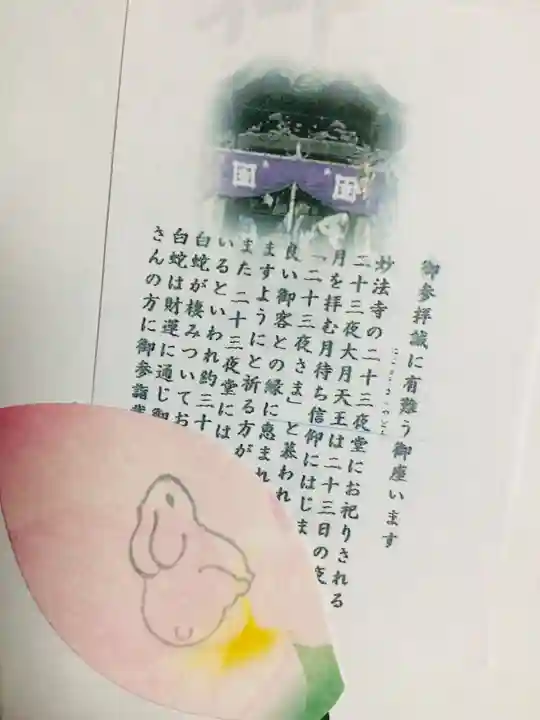 御参拝誠に有難う御座います
妙法寺の二十三夜堂にお祀りされる
二十三夜大月天王は二十三日の夜
月を拝む月待ち信仰にはじま
「二十三夜さま」と慕われ
良い御客との縁に恵まれ
ますようにと祈る方が
また 二十三夜堂には
いるといわれ約三十
白蛇が棲みついてお
白蛇は財運に通じ御
さんの方に御参詣